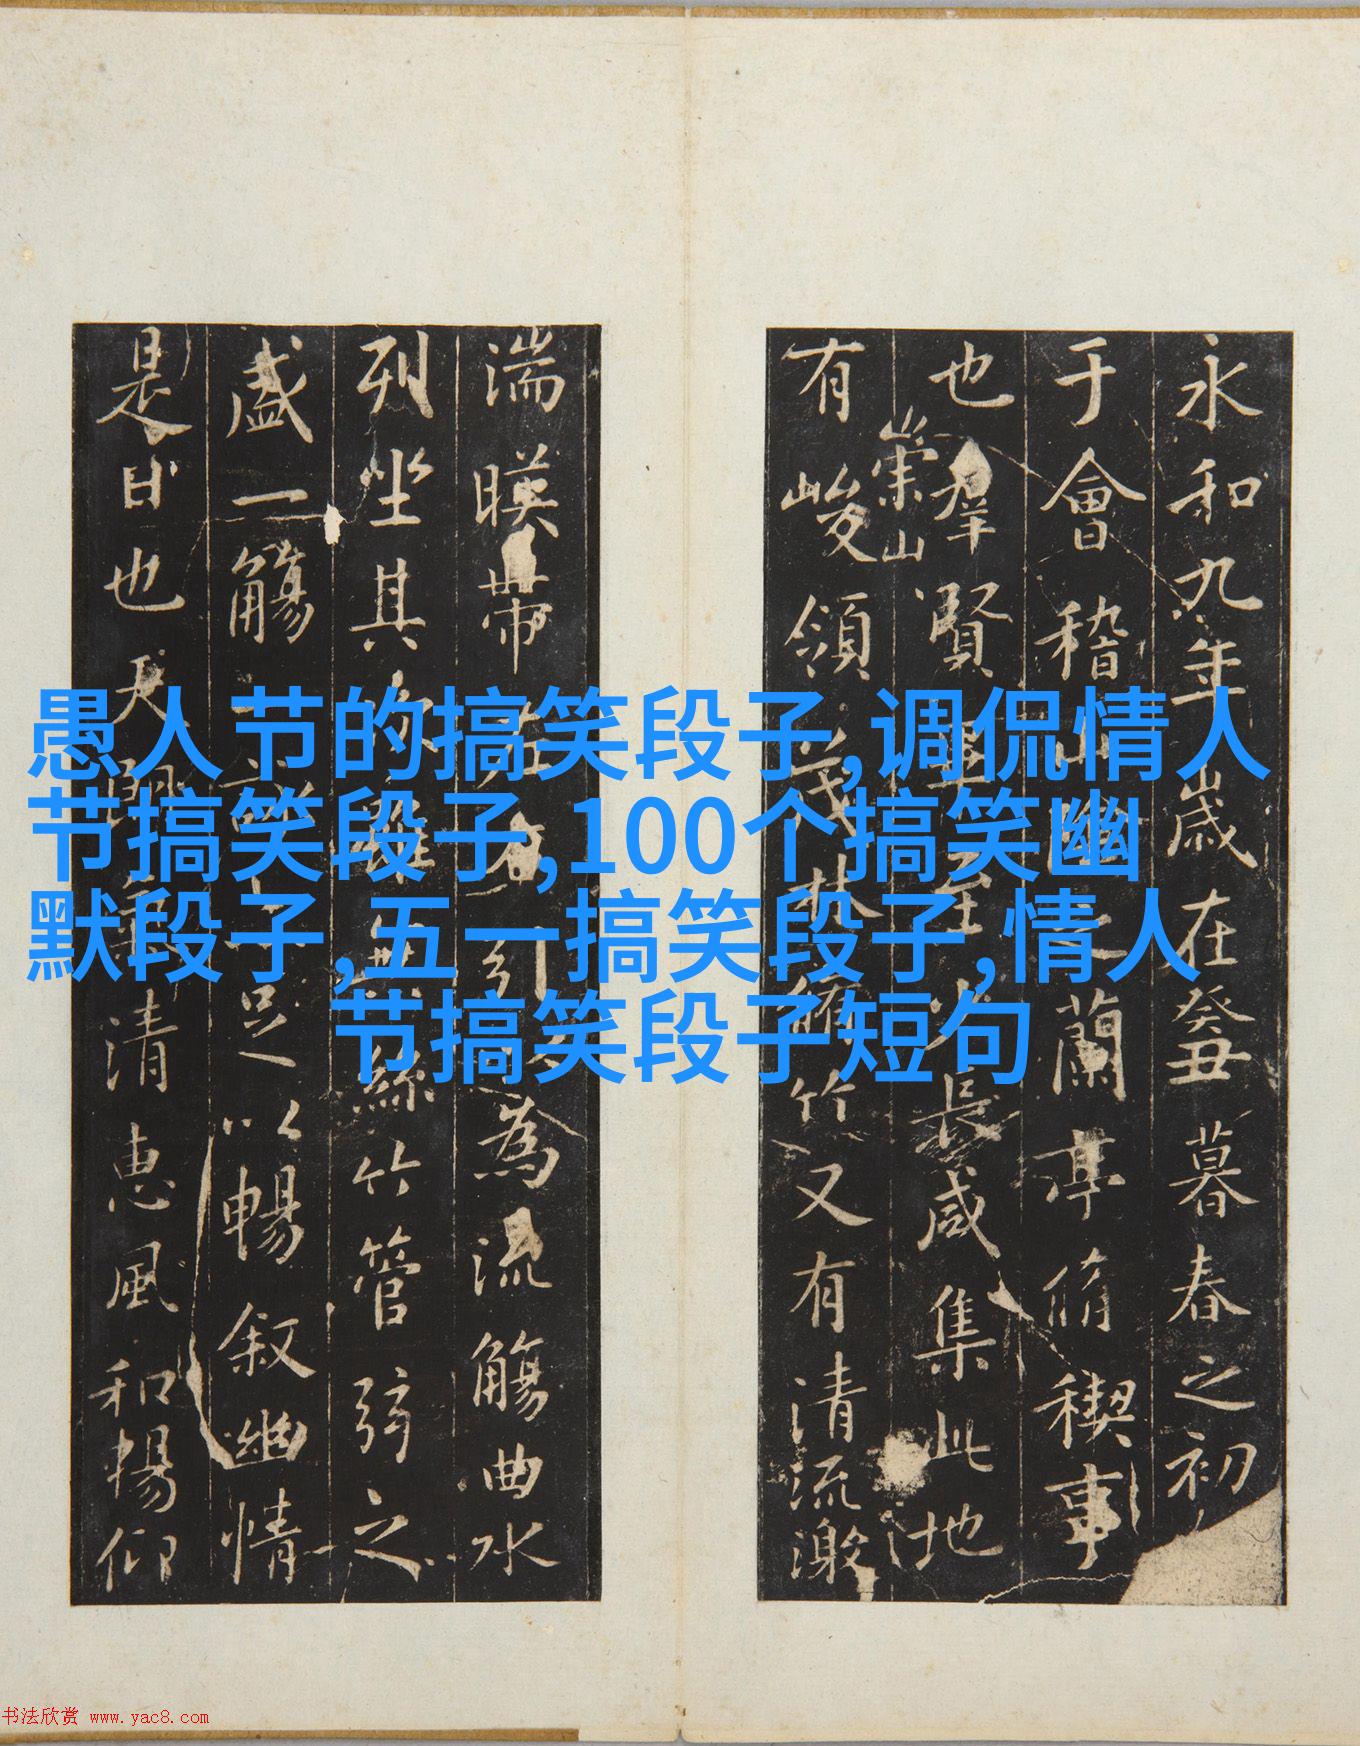 永和九年歲在癸丑暮春之初
于會稽山陰之蘭亭脩禊事
也群賢畢至少長咸集此地
崇山
有峻領茂林脩竹又有清流激
湍暎帶左右引以為流觴曲水
列坐其次雖無絲竹管弦之
盛一觴一詠亦足以暢叙幽情
是日也天朗氣清惠風和暢仰
愚人节的搞笑段子,调侃情人
节搞笑段子,100个搞笑幽
默段子,五一搞笑段子,情人
节搞笑段子短句
书法欣赏 www.yac8.com